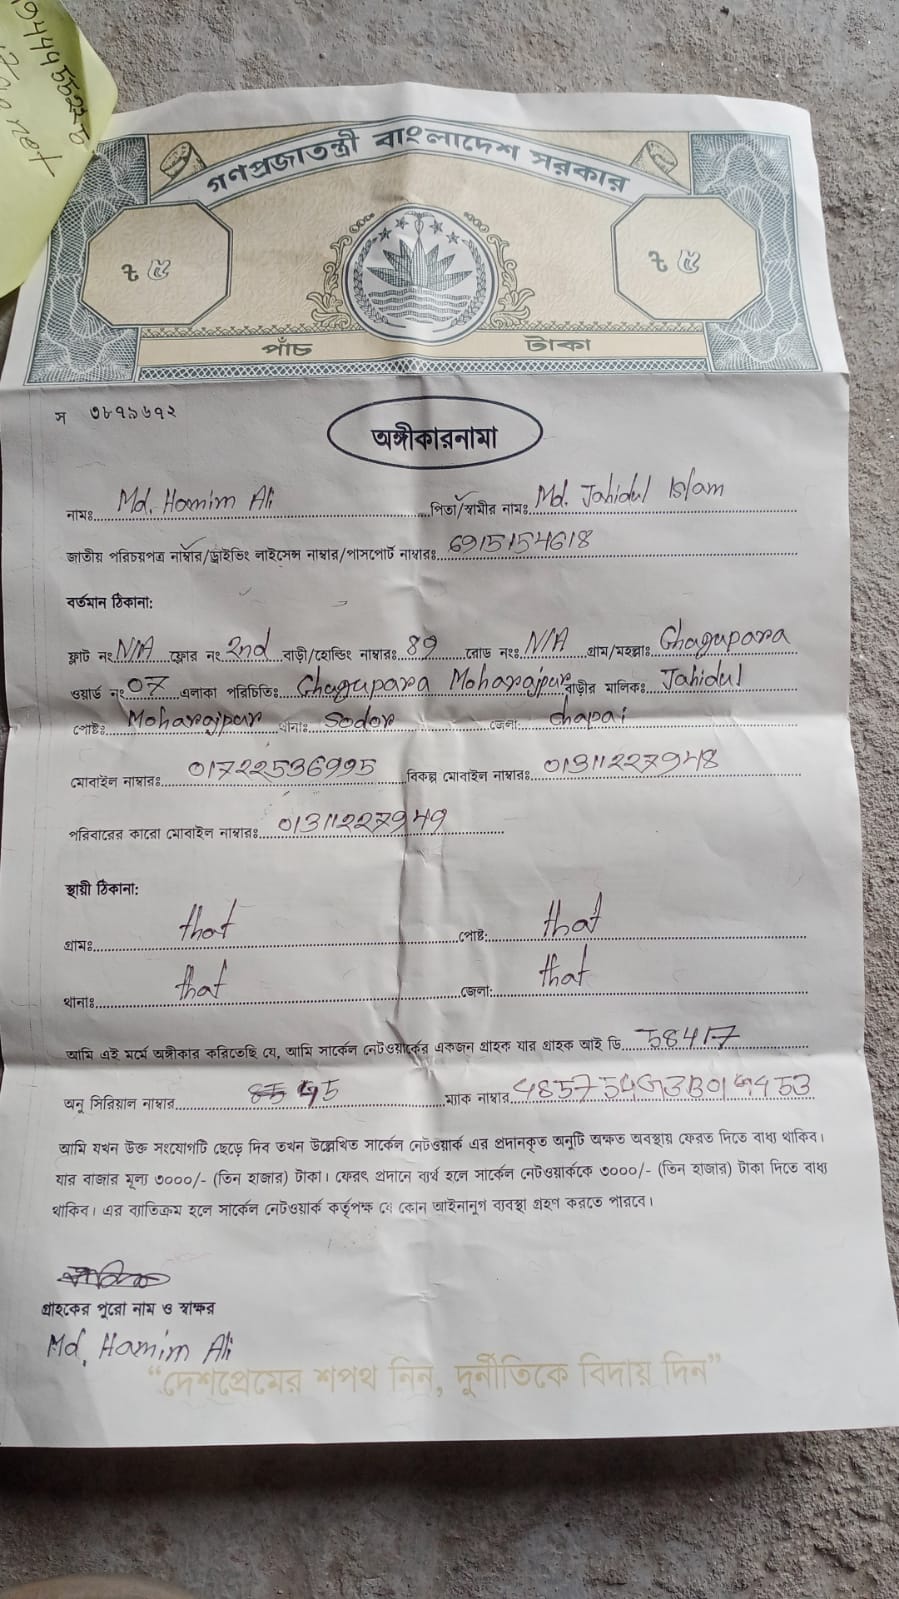 গণপ্রজাতন্ত্রী বাংলাদেশ সরকার
৳ ৫ ৳ ৫
পাঁচ টাকা
স ৩৮৭৯৬৭২
অঙ্গীকারনামা
নামঃ Md. Hamim Ali পিতা/স্বামীর নামঃ Md. Jahidul Islam
জাতীয় পরিচয়পত্র নাম্বার/ড্রাইভিং লাইসেন্স নাম্বার/পাসপোর্ট নাম্বারঃ 6915154618
বর্তমান ঠিকানা:
ফ্লাট নং N/A ফ্লোর নং 2nd বাড়ী/হোল্ডিং নাম্বারঃ 89 রোড নংঃ N/A গ্রাম/মহল্লাঃ Ghagupara
ওয়ার্ড নং 07 এলাকা পরিচিতিঃ Ghagupara Moharajpur বাড়ীর মালিকঃ Jahidul
পোষ্টঃ Moharajpur থানাঃ Sodor জেলা: chapai
মোবাইল নাম্বারঃ 01722536995 বিকল্প মোবাইল নাম্বারঃ 01311227948
পরিবারের কারো মোবাইল নাম্বারঃ 01311227949
স্থায়ী ঠিকানা:
গ্রামঃ that পোষ্ট: that
থানাঃ that জেলা: that
আমি এই মর্মে অঙ্গীকার করিতেছি যে, আমি সার্কেল নেটওয়ার্কের একজন গ্রাহক যার গ্রাহক আই ডি 58417
অনু সিরিয়াল নাম্বার ম্যাক নাম্বার
আমি যখন উক্ত সংযোগটি ছেড়ে দিব তখন উল্লেখিত সার্কেল নেটওয়ার্ক এর প্রদানকৃত অনুটি অক্ষত অবস্থায় ফেরত দিতে বাধ্য থাকিব।
যার বাজার মূল্য ৩০০০/- (তিন হাজার) টাকা। ফেরৎ প্রদানে ব্যর্থ হলে সার্কেল নেটওয়ার্ককে ৩০০০/- (তিন হাজার) টাকা দিতে বাধ্য
থাকিব। এর ব্যতিক্রম হলে সার্কেল নেটওয়ার্ক কর্তৃপক্ষ যে কোন আইনানুগ ব্যবস্থা গ্রহণ করতে পারবে।
গ্রাহকের পুরো নাম ও স্বাক্ষর
Md. Hamim Ali
"দেশপ্রেমের শপথ নিন, দুর্নীতিকে বিদায় দিন"